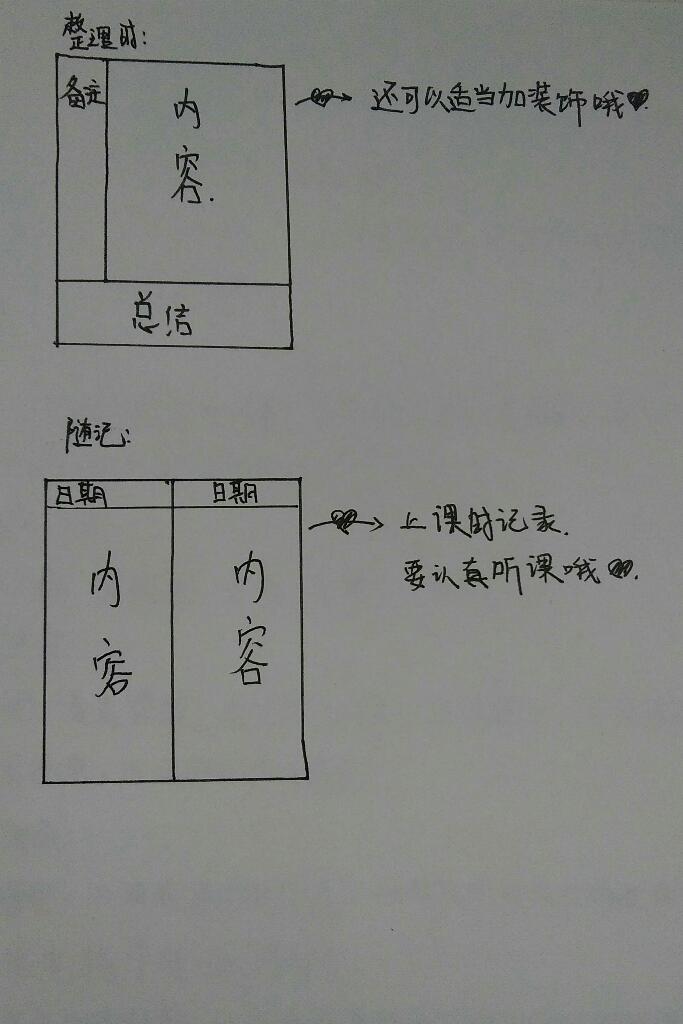 整理时:
备注
内容.
还可以适当加装饰哦
总结
随记:
日期 日期
内容 内容
上课时记录.
要认真听课哦.